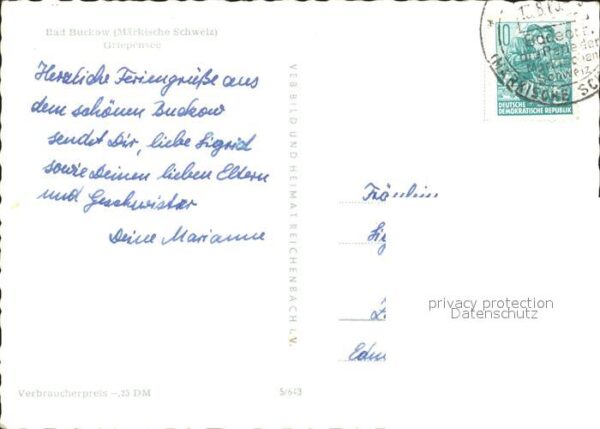 Bad Buckow (Märkische Schweiz)
Griepensee
Herzliche Feriengrüße aus
dem schönen Buckow
sendet Dir, liebe Sigrid
sowie Deinen lieben Eltern
und Geschwister
Deine Marianne
VEB BILD UND HEIMAT REICHENBACH i. V.
10
DEUTSCHE
DEMOKRATISCHE REPUBLIK
(MÄRKISCHE SC
Fräulein
privacy protection
Datenschutz
Verbraucherpreis –.25 DM
5/643